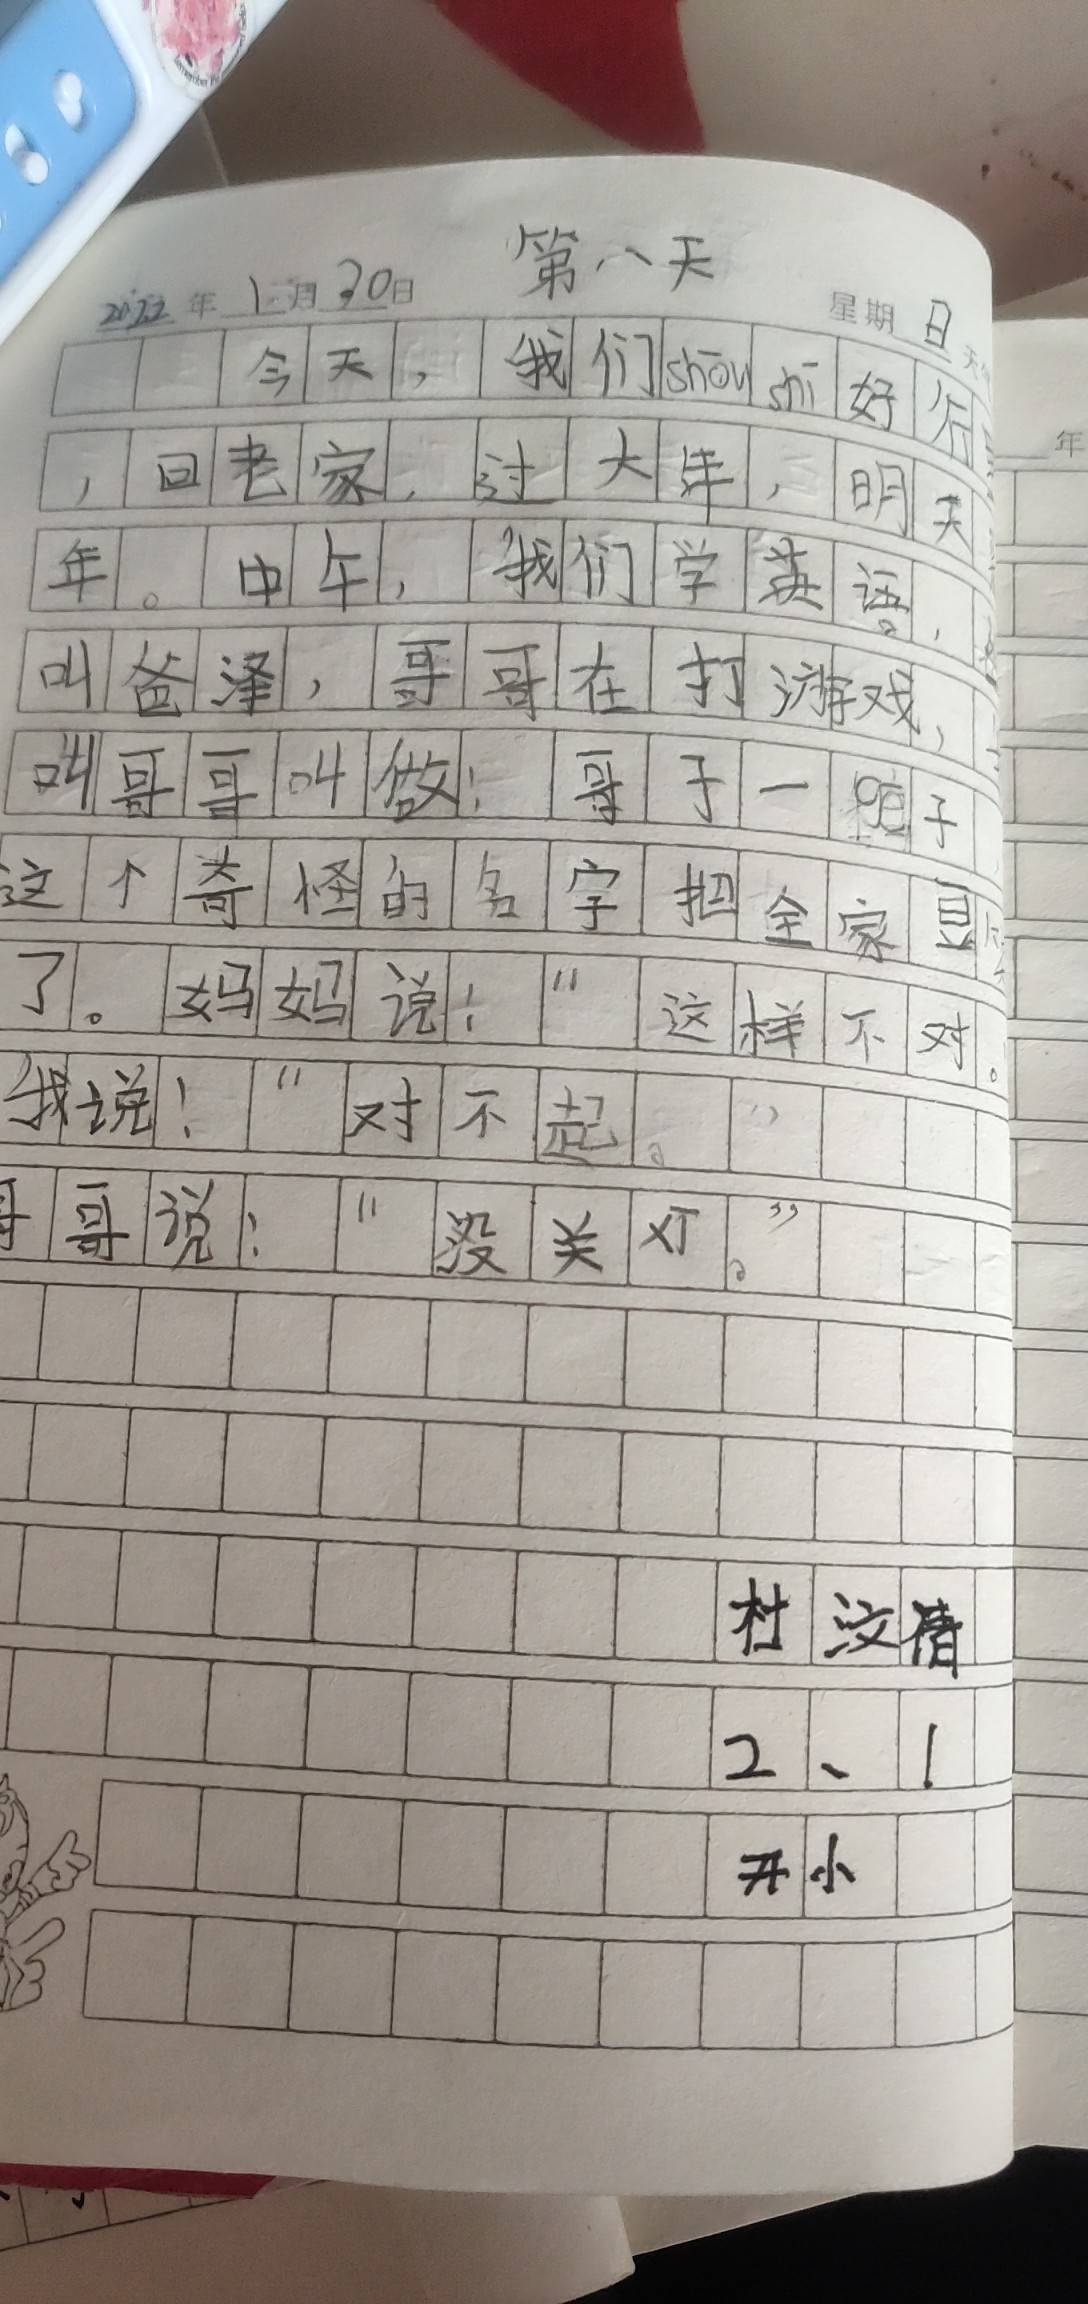 第八天
2022年1月30日 星期日 天
今天，我们shōu shí好行
，回老家，过大年，明天
年。中午，我们学英语，
叫爸泽，哥哥在打游戏，
叫哥哥叫做！哥子一子
这个奇怪的名字把全家
了。妈妈说！“这样不对。
我说！“对不起。”
哥哥说！“没关对。”
杜汶倩
2、1
开小
年